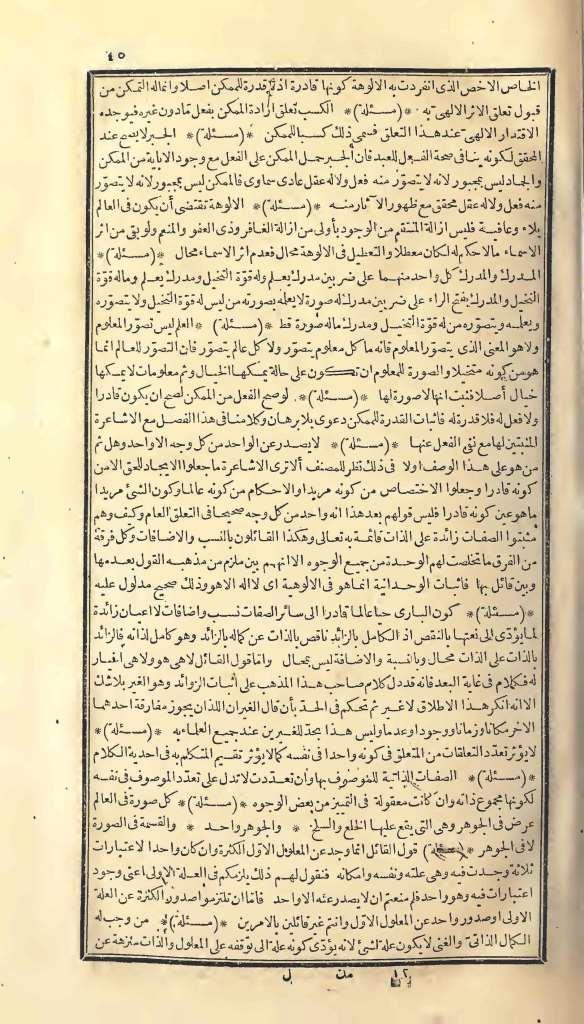 ٤٥
الخاص الاخص الذى انفردت به الالوهة كونها قادرة اذ لا قدرة للممكن اصلا وانما له التمكن من
قبول تعلق الاثر الالهى به *(مسئلة)* الكسب تعلق ارادة الممكن بفعل ما دون غيره فيوجده
الاقتدار الالهى عند هذا التعلق فسمى ذلك كسبا للممكن *(مسئلة)* الجبر لا يصح عند
المحقق لكونه ينافى صحة الفعل للعبد فان الجبر حمل الممكن على الفعل مع وجود الاباية من الممكن
والجماد ليس بمجبور لانه لا يتصور منه فعل ولا له عقل عادى سماوى فالممكن ليس بمجبور لانه لا يتصور
منه فعل ولا له عقل محقق مع ظهور الآثار منه *(مسئلة)* الالوهة تقتضى أن يكون فى العالم
بلاء وعافية فليس ازالة المنتقم من الوجود بأولى من ازالة الغافر وذى العفو والمنعم ولو بقى من
الاسماء مالا حكم له لكان معطلا والتعطيل فى الالوهة محال فعدم اثر الاسماء محال *(مسئلة)*
المدرك والمدرك كل واحد منهما على ضربين مدرك يعلم وله قوة التخيل ومدرك يعلم وماله قوة
التخيل والمدرك بفتح الراء على ضربين مدرك له صورة يعلمه بصورته من ليس له قوة التخيل ولا يتصوره
ويعلمه ويتصوره من له قوة التخيل ومدرك ماله صورة قط *(مسئلة)* العلم ليس تصور المعلوم
ولا هو المعنى الذى يتصور المعلوم فانه ما كل معلوم يتصور ولا كل عالم يتصور فان التصور للعالم انما
هو من كونه متخيلا والصورة للمعلوم ان تكون على حالة يمسكها الخيال وثم معلومات لا يمسكها
خيال أصلا فثبت انها لا صورة لها *(مسئلة)* لو صح الفعل من الممكن لصح ان يكون قادرا
ولا فعل له فلا قدرة له فاثبات القدرة للممكن دعوى بلا برهان وكلامنا فى هذا الفصل مع الاشاعرة
المثبتين لها مع نفى الفعل عنها *(مسئلة)* لا يصدر عن الواحد من كل وجه الا واحد وهل ثم
من هو على هذا الوصف اولا فى ذلك نظر للمنصف ألا ترى الاشاعرة ما جعلوا الايجاد للحق الا من
كونه قادرا وجعلوا الاختصاص من كونه مريدا والاحكام من كونه عالما وكون الشئ مريدا
ما هو عين كونه قادرا فليس قولهم بعد هذا انه واحد من كل وجه صحيحا فى التعلق العام وكيف وهم
مثبتوا الصفات زائدة على الذات قائمة به تعالى وهكذا القائلون بالنسب والاضافات وكل فرقة
من الفرق ما تخلصت لهم الوحدة من جميع الوجوه الا انهم بين ملزم من مذهبه القول بعدمها
وبين قائل بها فاثبات الوحدانية انما هو فى الالوهية اى لا اله الا هو وذلك صحيح مدلول عليه
*(مسئلة)* كون البارى حيا عالما قادرا الى سائر الصفات نسب واضافات لا اعيان زائدة
لما يؤدى الى نعتها بالنقص اذ الكامل بالزائد ناقص بالذات عن كماله بالزائد وهو كامل لذاته فالزائد
بالذات على الذات محال وبالنسبة والاضافة ليس بمحال واما قول القائل لا هى هو ولا هى اغيار
له فكلام فى غاية البعد فانه قد دل كلام صاحب هذا المذهب على اثبات الزوائد وهو الغير بلا شك
الا انه انكر هذا الاطلاق لا غير ثم تحكم فى الحد بأن قال الغيران اللذان يجوز مفارقة احدهما
الآخر مكانا وزمانا ووجودا وعدما وليس هذا بحد للغيرين عند جميع العلماء به *(مسئلة)*
لا يؤثر تعدد التعلقات من المتعلق فى كونه واحدا فى نفسه كما لا يؤثر تقسيم المتكلم به فى احدية الكلام
*(مسئلة)* الصفات الذاتية للموصوف بها وان تعددت لا تدل على تعدد الموصوف فى نفسه
لكونها مجموع ذاته وان كانت معقولة فى التميز من بعض الوجوه *(مسئلة)* كل صورة فى العالم
عرض فى الجوهر وهى التى يقع عليها الخلع والسلخ * والجوهر واحد * والقسمة فى الصورة
لا فى الجوهر *(مسئلة) قول القائل انما وجد عن المعلول الاول الكثرة وان كان واحدا لاعتبارات
ثلاثة وجدت فيه وهى علته ونفسه وامكانه فنقول لهم ذلك يلزمكم فى العلة الاولى اعنى وجود
اعتبارات فيه وهو واحد فلم منعتم ان لا يصدر عنه الا واحد فاما ان تلتزموا صدور الكثرة عن العلة
الاولى او صدور واحد عن المعلول الاول وانتم غير قائلين بالامرين *(مسئلة)* من وجب له
الكمال الذاتى والغنى لا يكون علة لشئ لانه يؤدى كونه علة الى توقفه على المعلول والذات منزهة عن
١٢ مت ل